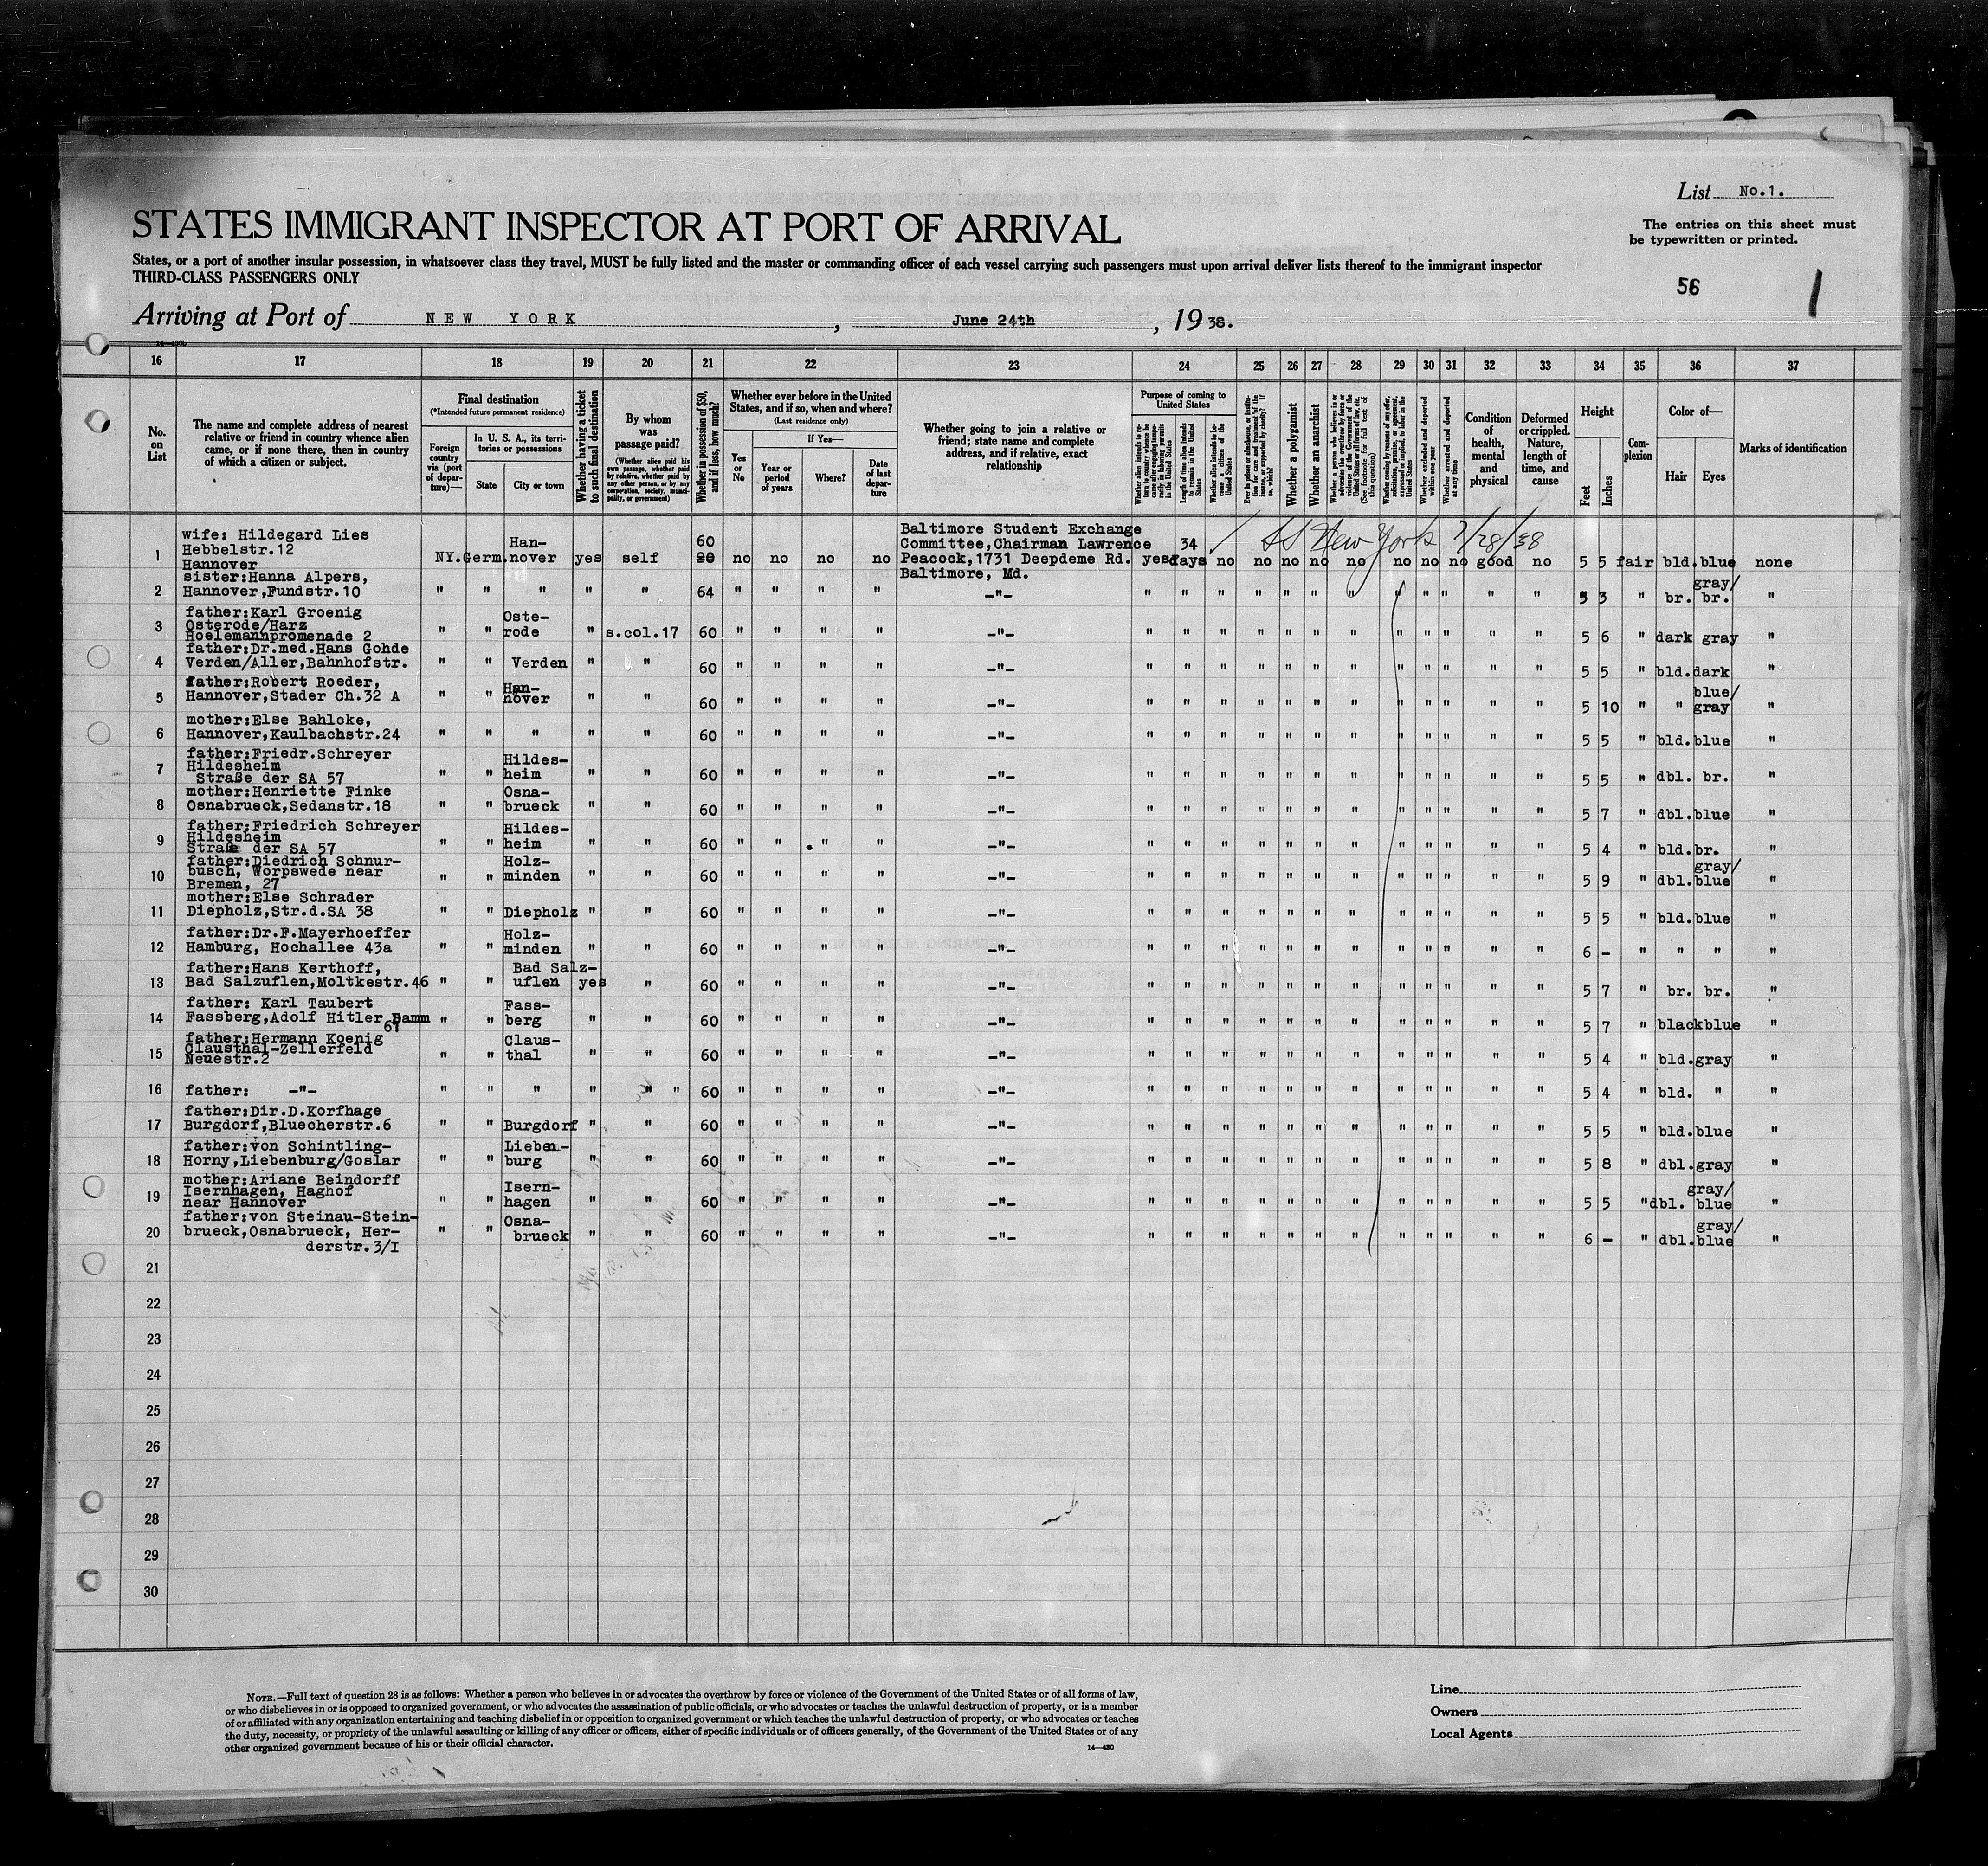 List No.1.
STATES IMMIGRANT INSPECTOR AT PORT OF ARRIVAL
The entries on this sheet must
be typewritten or printed.
States, or a port of another insular possession, in whatsoever class they travel, MUST be fully listed and the master or commanding officer of each vessel carrying such passengers must upon arrival deliver lists thereof to the immigrant inspector
THIRD-CLASS PASSENGERS ONLY
56 1
Arriving at Port of NEW YORK, June 24th, 1938.
16 17 18 19 20 21 22 23 24 25 26 27 28 29 30 31 32 33 34 35 36 37
No. on List
The name and complete address of nearest relative or friend in country whence alien came, or if none there, then in country of which a citizen or subject.
Final destination
(*Intended future permanent residence)
Foreign country via (port of departure)—
In U. S. A., its territories or possessions
State City or town
Whether having a ticket to such final destination
By whom was passage paid?
(Whether alien paid his own passage, whether paid by relative, whether paid by any other person, or by any corporation, society, municipality, or government)
Whether in possession of $50, and if less, how much?
Whether ever before in the United States, and if so, when and where?
(Last residence only)
Yes or No
If Yes—
Year or period of years
Where?
Date of last departure
Whether going to join a relative or friend; state name and complete address, and if relative, exact relationship
Purpose of coming to United States
Length of time alien intends to remain in the United States
Whether alien intends to become a citizen of the United States
Whether a polygamist
Whether an anarchist
(See footnote for full text of this question)
Whether excluded and deported within one year
Whether arrested and deported at any time
Condition of health, mental and physical
Deformed or crippled. Nature, length of time, and cause
Height
Feet Inches
Complexion
Color of—
Hair Eyes
Marks of identification
SS New York 7/28/38
1 wife: Hildegard Lies
Hebbelstr.12
Hannover NY. Germ. Hannover yes self 60 20 no no no no Baltimore Student Exchange
Committee, Chairman Lawrence
Peacock, 1731 Deepdeme Rd.
Baltimore, Md. yes 34 days no no no no no no no no good no 5 5 fair bld. blue none
2 sister:Hanna Alpers,
Hannover,Fundstr.10 " " " " " 64 " " " " -"- " " " " " " " " " " " " 5 3 " br. gray/br. "
3 father:Karl Groenig
Osterode/Harz
Hoelemannpromenade 2 " " Osterode " s.col.17 60 " " " " -"- " " " " " " " " " " " " 5 6 " dark gray "
4 father:Dr.med.Hans Gohde
Verden/Aller,Bahnhofstr. " " Verden " " 60 " " " " -"- " " " " " " " " " " " " 5 5 " bld. dark "
5 father:Robert Roeder,
Hannover,Stader Ch.32 A " " Hannover " " 60 " " " " -"- " " " " " " " " " " " " 5 10 " " blue/gray "
6 mother:Else Bahlcke,
Hannover,Kaulbachstr.24 " " " " " 60 " " " " -"- " " " " " " " " " " " " 5 5 " bld. blue "
7 father:Friedr.Schreyer
Hildesheim
Straße der SA 57 " " Hildesheim " " 60 " " " " -"- " " " " " " " " " " " " 5 5 " dbl. br. "
8 mother:Henriette Finke
Osnabrueck,Sedanstr.18 " " Osnabrueck " " 60 " " " " -"- " " " " " " " " " " " " 5 7 " dbl. blue "
9 father:Friedrich Schreyer
Hildesheim
Straße der SA 57 " " Hildesheim " " 60 " " " " -"- " " " " " " " " " " " " 5 4 " bld. br. "
10 father:Diedrich Schnur-
busch, Worpswede near
Bremen, 27 " " Holzminden " " 60 " " " " -"- " " " " " " " " " " " " 5 9 " dbl. gray/blue "
11 mother:Else Schrader
Diepholz,Str.d.SA 38 " " Diepholz " " 60 " " " " -"- " " " " " " " " " " " " 5 5 " bld. blue "
12 father:Dr.F.Mayerhoeffer
Hamburg, Hochallee 43a " " Holzminden " " 60 " " " " -"- " " " " " " " " " " " " 6 - " " " "
13 father:Hans Kerthoff,
Bad Salzuflen,Moltkestr.46 " " Bad Salzuflen yes " 60 " " " " -"- " " " " " " " " " " " " 5 7 " br. br. "
14 father: Karl Taubert
Fassberg,Adolf Hitler Damm
67 " " Fassberg " " 60 " " " " -"- " " " " " " " " " " " " 5 7 " black blue "
15 father:Hermann Koenig
Clausthal-Zellerfeld
Neuestr.2 " " Clausthal " " 60 " " " " -"- " " " " " " " " " " " " 5 4 " bld. gray "
16 father: -"- " " " " " " 60 " " " " -"- " " " " " " " " " " " " 5 4 " bld. " "
17 father:Dir.D.Korfhage
Burgdorf,Bluecherstr.6 " " Burgdorf " " 60 " " " " -"- " " " " " " " " " " " " 5 5 " bld. blue "
18 father:von Schintling-
Horny,Liebenburg/Goslar " " Liebenburg " " 60 " " " " -"- " " " " " " " " " " " " 5 8 " dbl. gray "
19 mother:Ariane Beindorff
Isernhagen, Haghof
near Hannover " " Isernhagen " " 60 " " " " -"- " " " " " " " " " " " " 5 5 " dbl. gray/blue "
20 father:von Steinau-Stein-
brueck,Osnabrueck, Her-
derstr.3/I " " Osnabrueck " " 60 " " " " -"- " " " " " " " " " " " " 6 - " dbl. gray/blue "
21
22
23
24
25
26
27
28
29
30
NOTE.—Full text of question 28 is as follows: Whether a person who believes in or advocates the overthrow by force or violence of the Government of the United States or of all forms of law,
or who disbelieves in or is opposed to organized government, or who advocates the assassination of public officials, or who advocates or teaches the unlawful destruction of property, or is a member
of or affiliated with any organization entertaining and teaching disbelief in or opposition to organized government or which teaches the unlawful destruction of property, or who advocates or teaches
the duty, necessity, or propriety of the unlawful assaulting or killing of any officer or officers, either of specific individuals or of officers generally, of the Government of the United States or of any
other organized government because of his or their official character.
14—430
Line
Owners
Local Agents